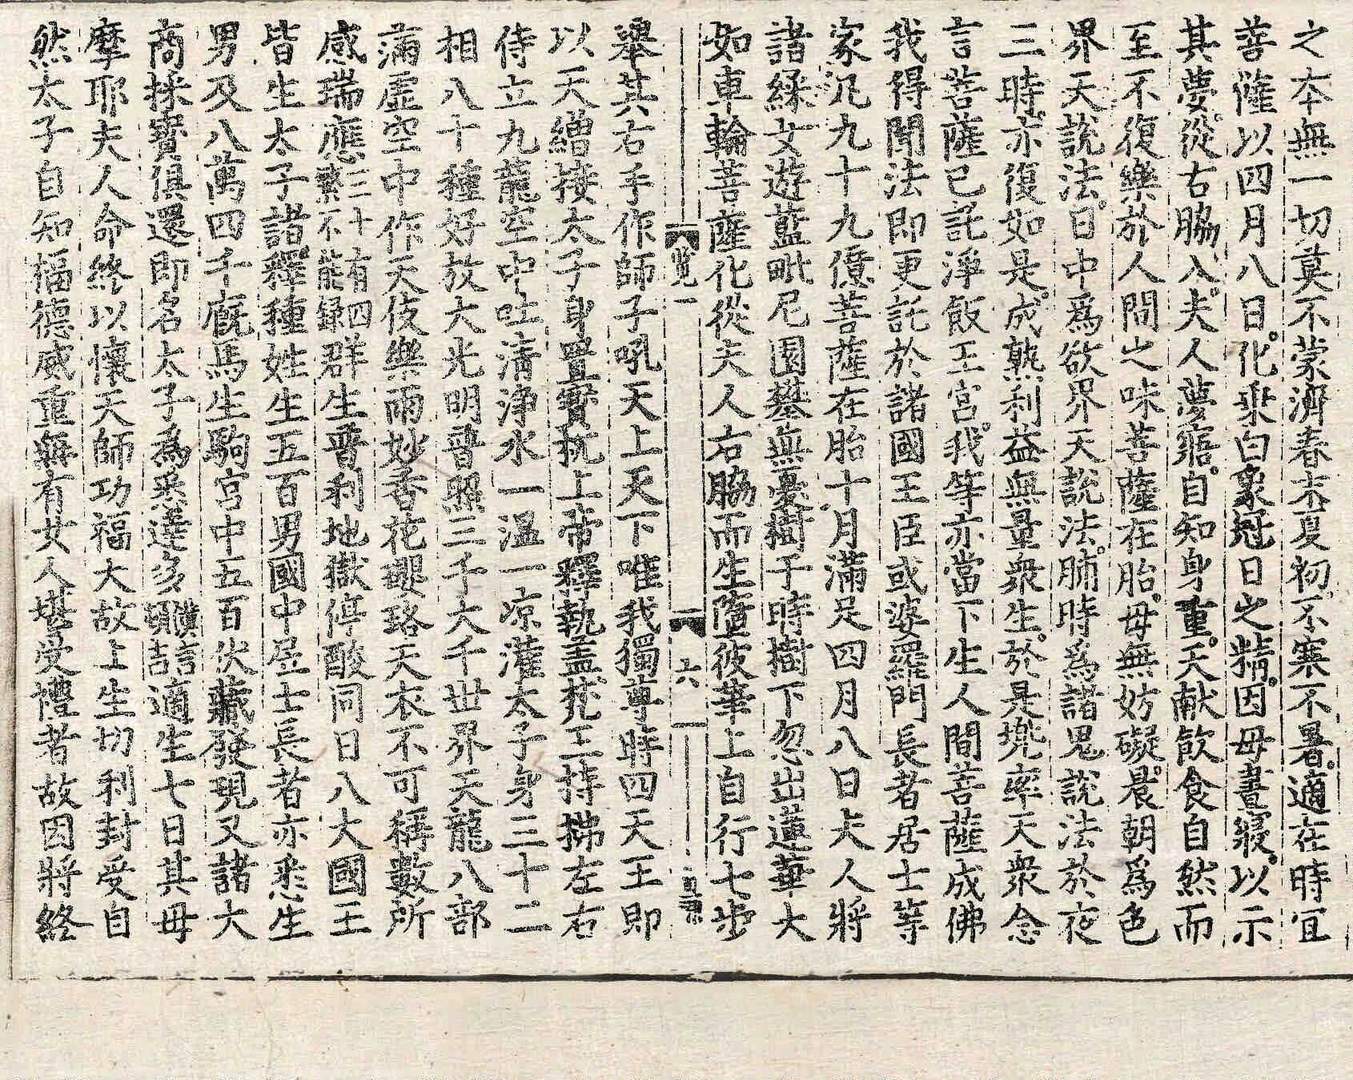 之本無一切莫不蒙濟春末夏初不寒不暑適在時宜
菩薩以四月八日化乗白象冠日之精因母晝寢以示
其夢從右脇入夫人夢寤自知身重天献飲食自然而
至不復樂於人間之味菩薩在胎母無妨礙晨朝爲色
界天說法日中爲欲界天說法晡時爲諸鬼說法於夜
三時亦復如是成熟利益無量衆生於是兜率天衆念
言菩薩已託淨飯王宮我等亦當下生人間菩薩成佛
我得聞法即更託於諸國王臣或婆羅門長者居士等
家凡九十九億菩薩在胎十月滿足四月八日夫人將
諸綵女遊藍毗尼園攀無憂樹于時樹下忽出蓮華大
如車輪菩薩化從夫人右脇而生墮彼華上自行七步
覽一 六
舉其右手作師子吼天上天下唯我獨尊時四天王即
以天繒接太子身置寳机上帝釋執盖梵王持拂左右
侍立九龍空中吐清淨水一溫一凉灌太子身三十二
相八十種好放大光明普照三千大千世界天龍八部
滿虛空中作天伎樂雨妙香花瓔珞天衣不可稱數所
感瑞應三十有四繁不能録群生普利地獄停酸同日八大國王
皆生太子諸釋種姓生五百男國中居士長者亦悉生
男及八萬四千廐馬生駒宮中五百伏藏發現又諸大
商採寳俱還即名太子為悉達多漢言頓吉適生七日其母
摩耶夫人命終以懷天師功福大故上生切利封受自
然太子自知福德威重無有女人堪受禮者故因將終